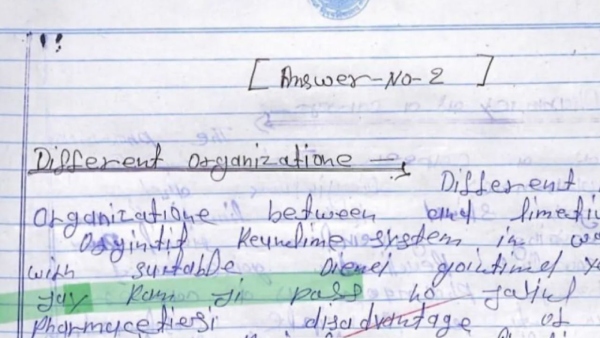 [Answer-No-2]
Different Organizatione →
Different
Organizatione between and limetig
Keynelime system in
with suitable Dienei
Jay Ram Ji pass ho jaful
Pharmacetiesi disadvantage of